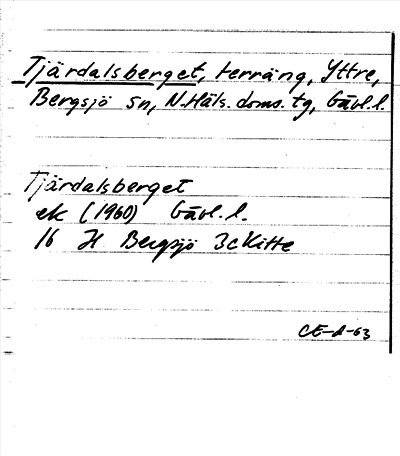 Tjärdalsberget, terräng, Yttre,
Bergsjö sn, N.Häls. doms. tg, Gävl.l.
Tjärdalsberget
ek (1960) Gävl. l.
16 H Bergsjö 3c Kitte
CE-d-63